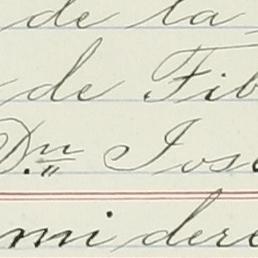 de la
de Fib
Dn. José
mi dere